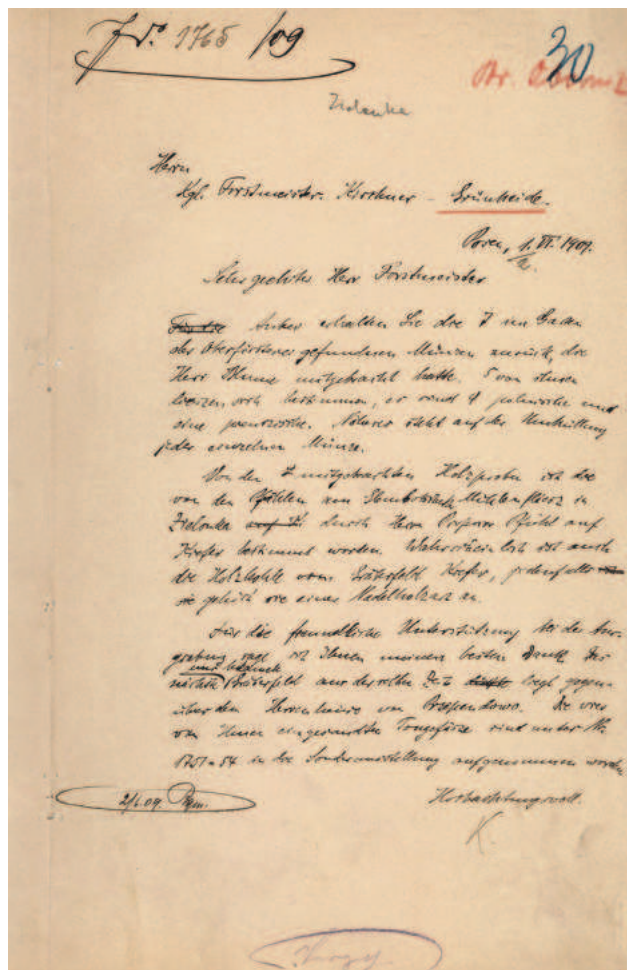 J. № 1765/09
30
Zielonka
Herrn
Kgl. Forstmeister Kirchner - Grünheide.
Posen, 1. VI. 1909.
2.
Sehr geehrter Herr Forstmeister
Anbei erhalten Sie die 7 im Garten
der Oberförsterei gefundenen Münzen zurück, die
Herr Blume mitgebracht hatte. 5 von ihnen
liessen sich bestimmen, es sind 4 polnische und
eine preussische. Näheres steht auf der Umhüllung
jeder einzelnen Münze.
Von den 2 mitgebrachten Holzproben ist die
von den Pfählen am Mühlenfliess in
Zielonka durch Herrn Professor Pfuhl auf
Kiefer bestimmt worden. Wahrscheinlich ist auch
die Holzkohle vom Gräberfeld Kiefer, jedenfalls
sie gehört sie einer Nadelholzart an.
Für die freundliche Unterstützung bei der Aus-
grabung sage ich Ihnen meinen besten Dank. Das
nächste Gräberfeld aus derselben Zeit liegt gegen-
über dem Herrenhause von Przependowo. Die vier
von Ihnen eingesandten Tongefässe sind unter №
1751-54 in die Sonderausstellung aufgenommen worden
Hochachtungsvoll.
2/6.09.
K.